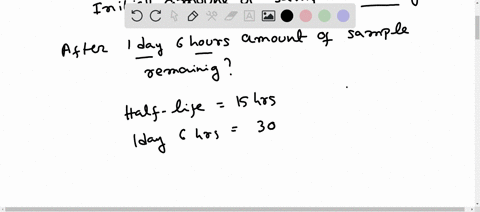 Initial amount of
After 1 day 6 hours amount of sample
remainig?
Half-life = 15 hrs
1day 6 hrs = 30